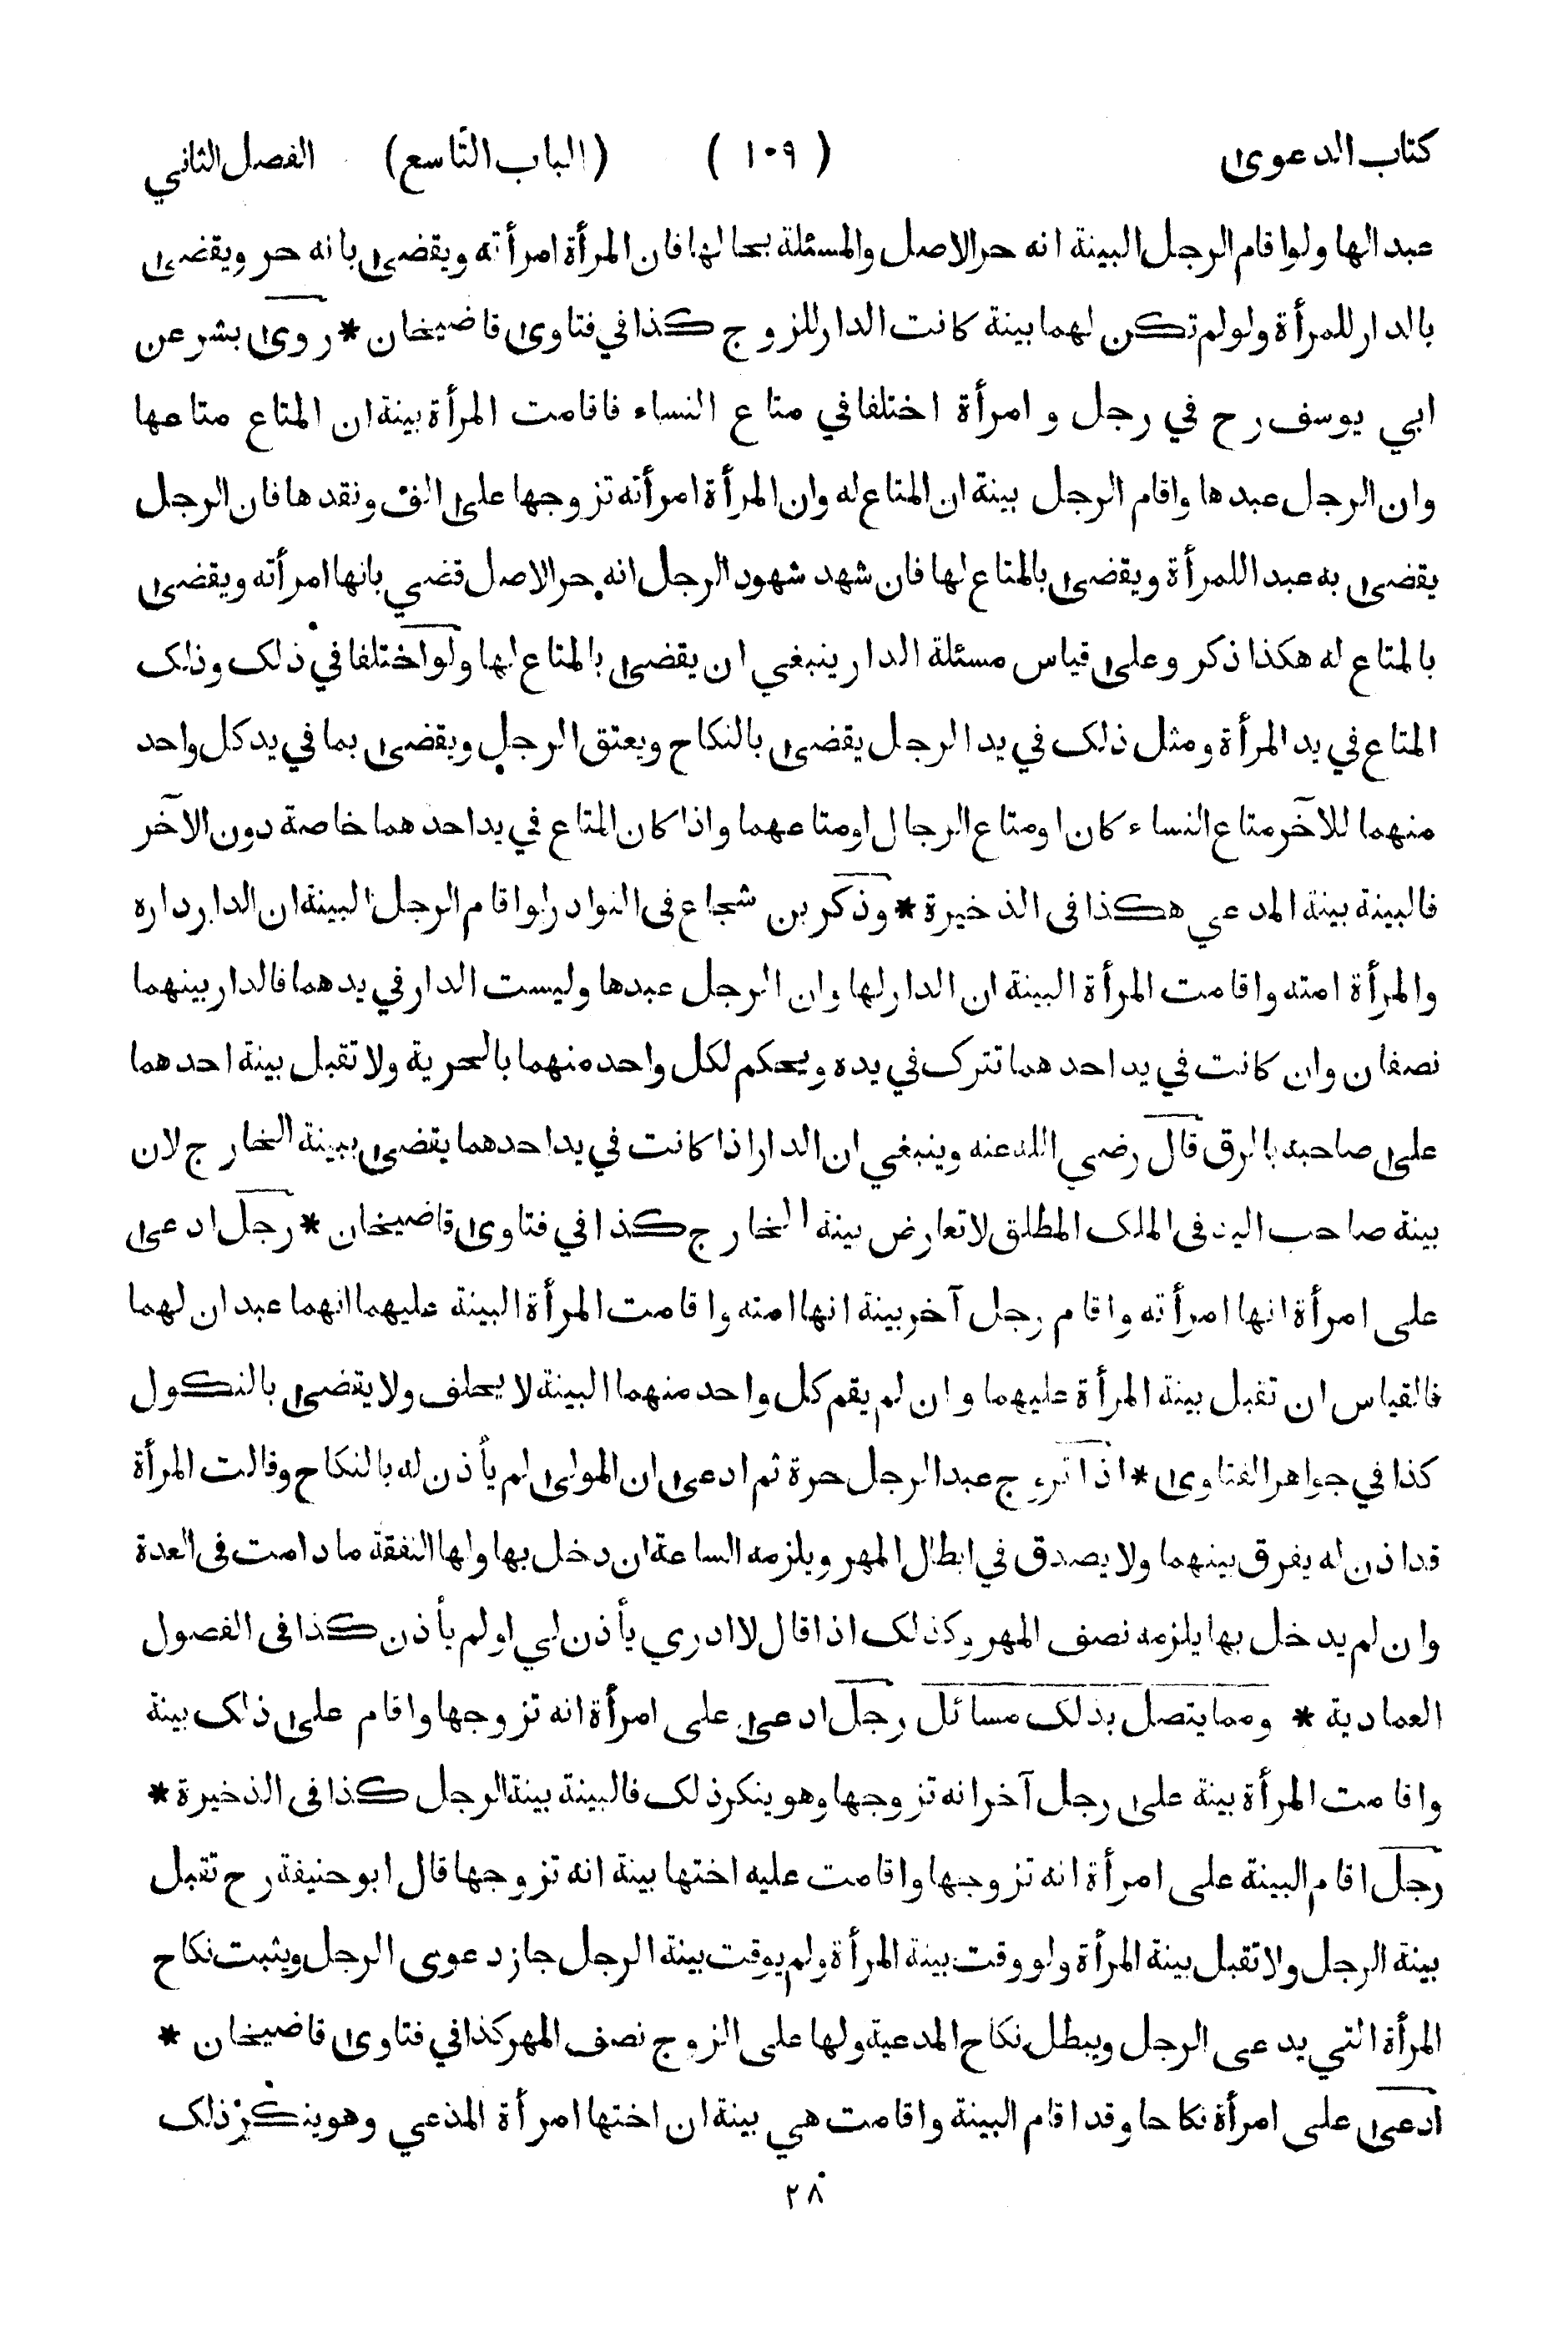 كتاب الدعوى (١٠٩) (الباب التاسع) الفصل الثاني
عبدالها ولواقام الرجل البينة انه حرالاصل والمسئلة بحالها فان المرأة امرأته ويقضى بانه حر ويقضى
بالدار للمرأة ولولم تكن لهما بينة كانت الدار للزوج كذا في فتاوى قاضيخان * روى بشر عن
ابي يوسف رح في رجل و امرأة اختلفا في متاع النساء فاقامت المرأة بينة ان المتاع متاعها
وان الرجل عبدها واقام الرجل بينة ان المتاع له وان المرأة امرأته تزوجها على الف ونقدها فان الرجل
يقضى به عبدا للمرأة ويقضى بالمتاع لها فان شهد شهود الرجل انه حرالاصل قضي بانها امرأته ويقضى
بالمتاع له هكذا ذكر وعلى قياس مسئلة الدار ينبغي ان يقضى بالمتاع لها ولواختلفا في ذلك وذلك
المتاع في يد المرأة ومثل ذلك في يد الرجل يقضى بالنكاح ويعتق الرجل ويقضى بما في يد كل واحد
منهما للآخر متاع النساء كان او متاع الرجال اومتاعهما واذا كان المتاع في يد احدهما خاصة دون الآخر
فالبينة بينة المدعي هكذا فى الذخيرة * وذكر بن شجاع فى النوادر لواقام الرجل البينة ان الدار داره
والمرأة امته واقامت المرأة البينة ان الدار لها وان الرجل عبدها وليست الدار في يدهما فالدار بينهما
نصفان وان كانت في يد احدهما تترك في يده ويحكم لكل واحد منهما بالحرية ولا تقبل بينة احدهما
على صاحبه بالرق قال رضي الله عنه وينبغي ان الدار اذا كانت في يد احدهما يقضى ببينة الخارج لان
بينة صاحب اليد فى الملك المطلق لا تعارض بينة الخارج كذا في فتاوى قاضيخان * رجل ادعى
على امرأة انها امرأته واقام رجل آخر بينة انها امته واقامت المرأة البينة عليهما انهما عبدان لهما
فالقياس ان تقبل بينة المرأة عليهما وان لم يقم كل واحد منهما البينة لا يحلف ولا يقضى بالنكول
كذا في جواهر الفتاوى * اذا تزوج عبد الرجل حرة ثم ادعى ان المولى لم يأذن له بالنكاح وقالت المرأة
قد اذن له يفرق بينهما ولا يصدق في ابطال المهر ويلزمه الساعة ان دخل بها ولها النفقة ما دامت فى العدة
وان لم يدخل بها يلزمه نصف المهر وكذلك اذا قال لا ادري يأذن لي اولم يأذن كذا فى الفصول
العمادية * ومما يتصل بذلك مسائل رجل ادعى على امرأة انه تزوجها واقام على ذلك بينة
واقامت المرأة بينة على رجل آخر انه تزوجها وهو ينكر ذلك فالبينة بينة الرجل كذا فى الذخيرة *
رجل اقام البينة على امرأة انه تزوجها واقامت عليه اختها بينة انه تزوجها قال ابوحنيفة رح تقبل
بينة الرجل ولا تقبل بينة المرأة ولو وقت بينة المرأة ولم يوقت بينة الرجل جاز دعوى الرجل ويثبت نكاح
المرأة التي يدعى الرجل ويبطل نكاح المدعية ولها على الزوج نصف المهر كذا في فتاوى قاضيخان *
ادعى على امرأة نكاحا وقد اقام البينة واقامت هي بينة ان اختها امرأة المدعي وهو ينكر ذلك
٢٨